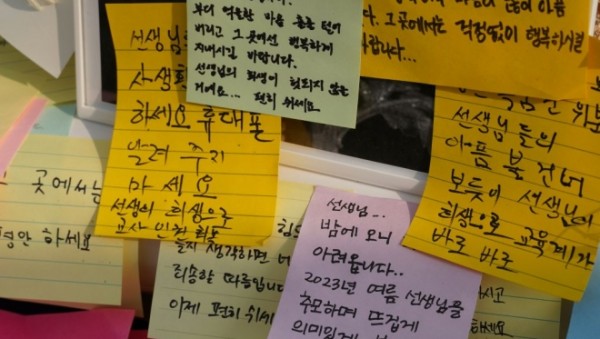 부디 억울한 마음 훌훌 털어
버리고 그 곳에선 행복하게
지내시길 바랍니다.
선생님의 희생이 헛되지 않을
거에요... 편히 쉬세요
많이 아픔
다. 그곳에서는 걱정없이 행복하시길
랍니다...
선생님
사생
하세요 휴대폰
알려 주지
마세요
선생의 희생으로
교사 인권 회복
선생님들의
아픔 불 건너
보듯이 선생님의
희생으로 교육계가
바로 바로
곳에서는
안 하세요
생각하면
죄송할 따름입니다
이제 편히 쉬세
선생님...
밤에 오니
아려옵니다..
2023년 여름 선생님을
추모하며 뜨겁게
의미있게
시고
하세요